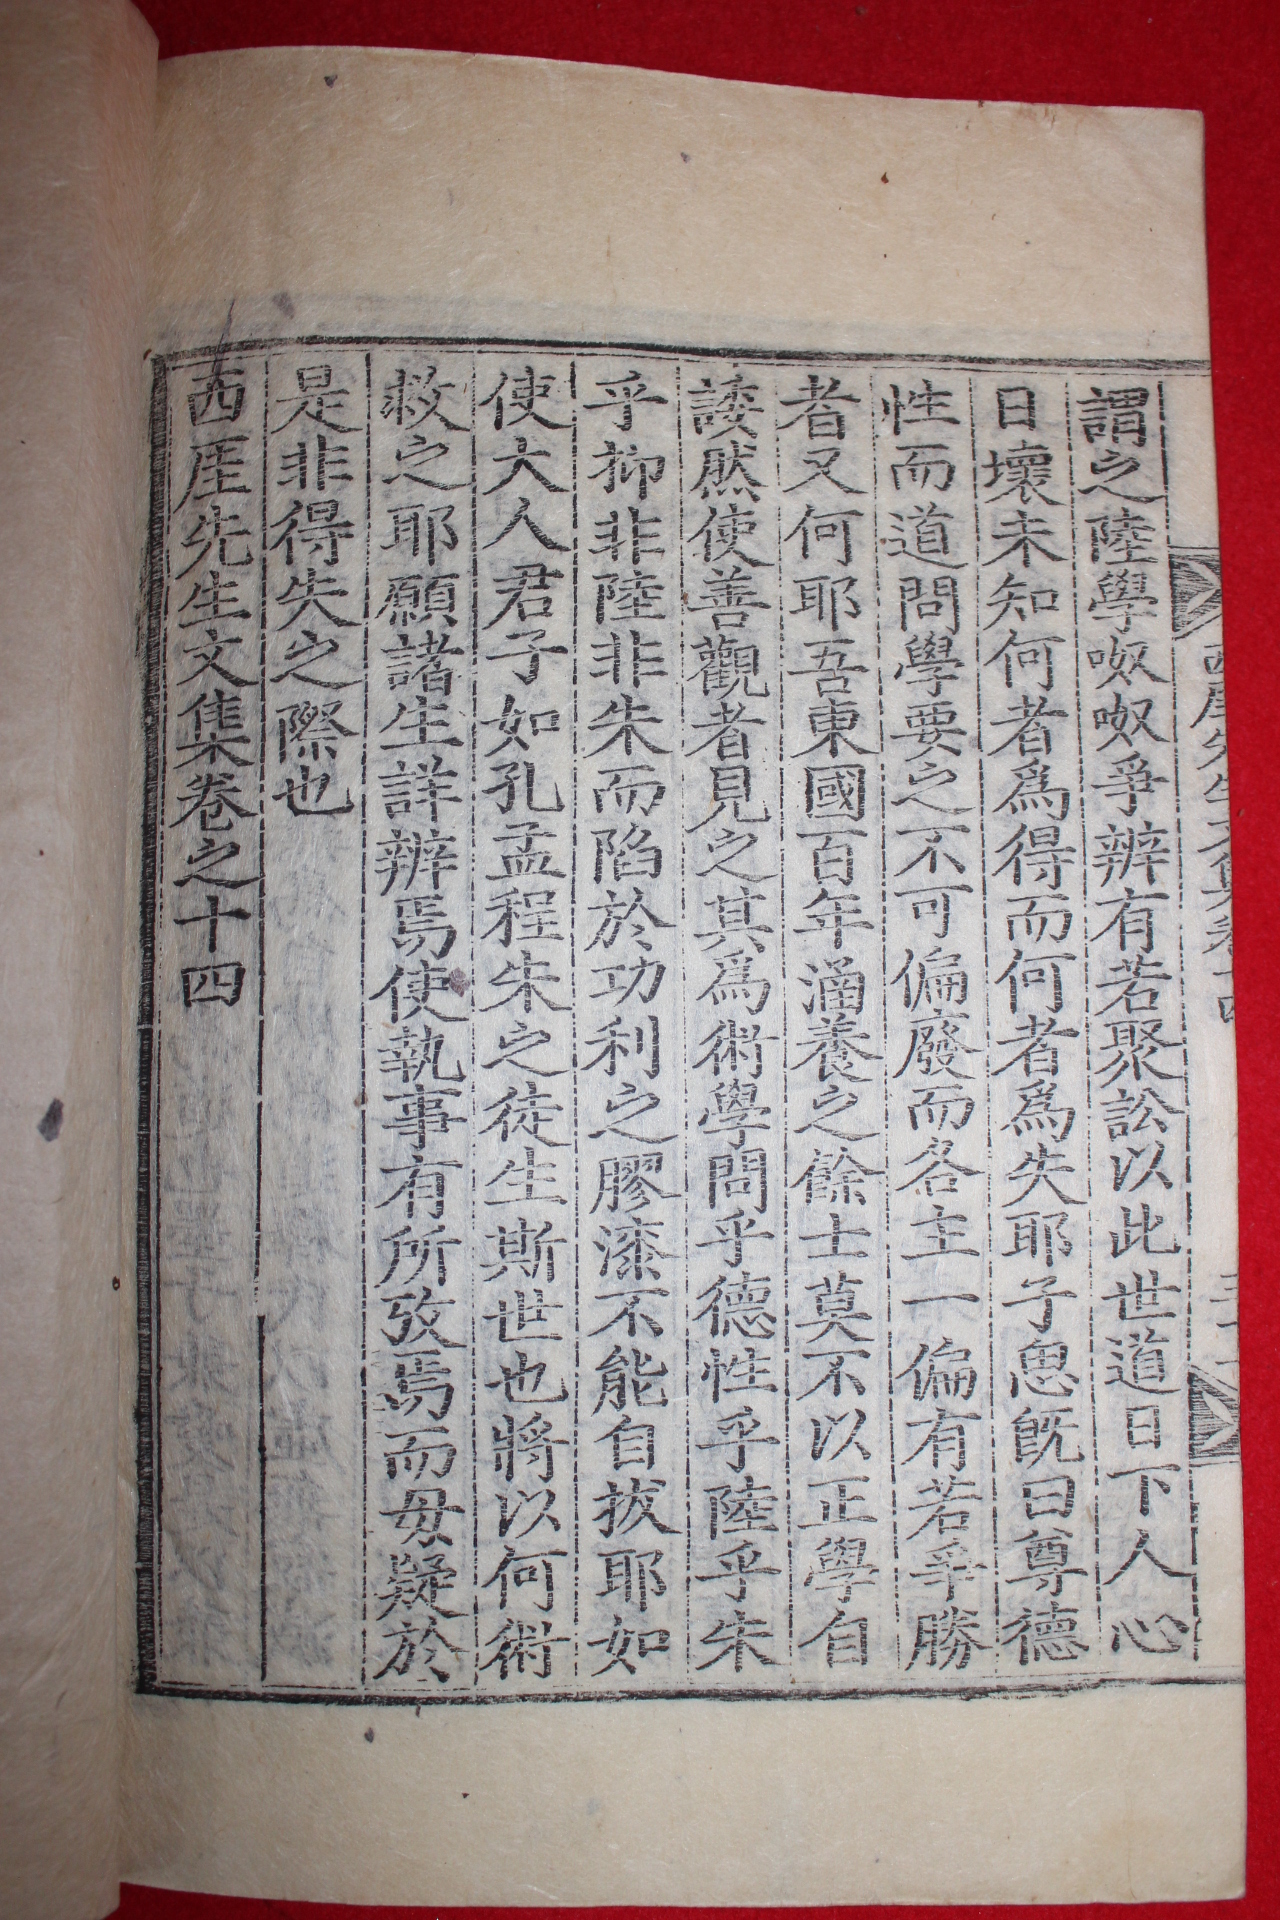 謂之陸學呶呶爭辨有若聚訟以此世道日下人心
日壞未知何者爲得而何者爲失耶子思旣曰尊德
性而道問學要之不可偏廢而各主一偏有若爭勝
者又何耶吾東國百年涵養之餘士莫不以正學自
諉然使善觀者見之其爲術學問乎德性乎陸乎朱
乎抑非陸非朱而陷於功利之膠漆不能自拔耶如
使大人君子如孔孟程朱之徒生斯世也將以何術
救之耶願諸生詳辨焉使執事有所攷焉而毋疑於
是非得失之際也
西厓先生文集卷之十四